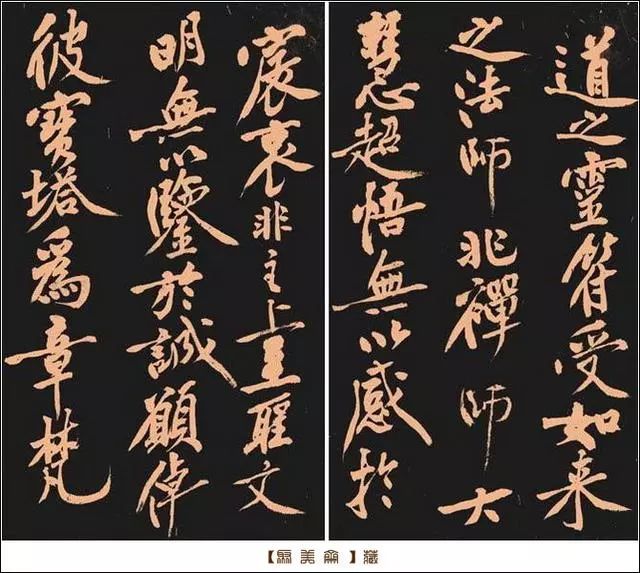 道之靈符受如来
之法师非禪师大
慧超悟無以感於
宸衷非主上至聖文
明無以鑒於誠願倬
彼寶塔為章梵